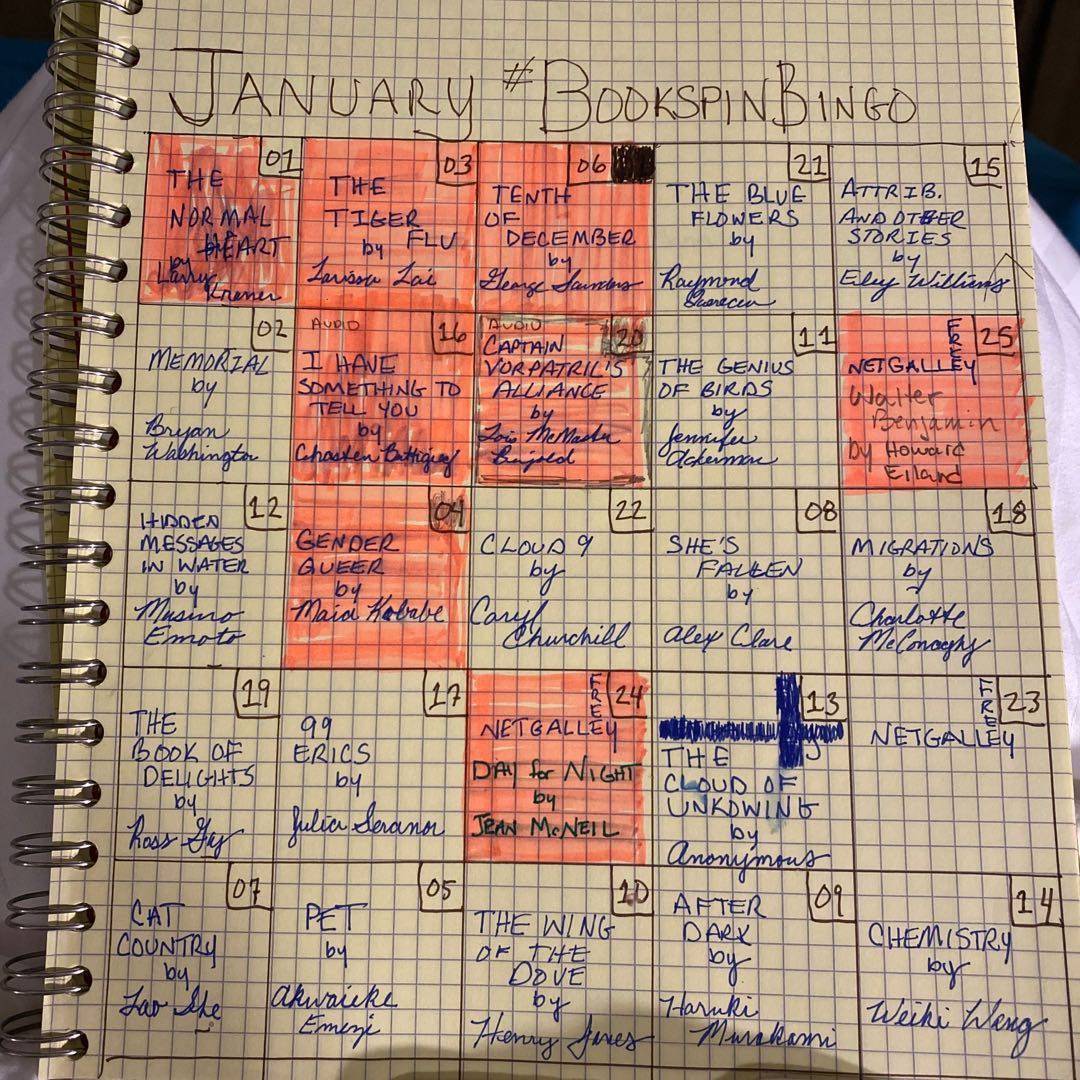 JANUARY #BOOKSPINBINGO
01
THE
NORMAL
HEART
by
Larry
Kramer
03
THE
TIGER
FLU
by
Larissa Lai
06
TENTH
OF
DECEMBER
by
George Saunders
21
THE BLUE
FLOWERS
by
Raymond
Queneau
15
ATTRIB.
AND OTHER
STORIES
by
Eley Williams
02
MEMORIAL
by
Bryan
Washington
AUDIO
16
I HAVE
SOMETHING TO
TELL YOU
by
Chasten Buttigieg
AUDIO
20
CAPTAIN
VORPATRIL'S
ALLIANCE
by
Lois McMaster
Bujold
11
THE GENIUS
OF BIRDS
by
Jennifer
Ackerman
FREE
25
NETGALLEY
Walter
Benjamin
by Howard
Eiland
12
HIDDEN
MESSAGES
IN WATER
by
Masuro
Emoto
04
GENDER
QUEER
by
Maia Kobabe
22
CLOUD 9
by
Caryl
Churchill
08
SHE'S
FALLEN
by
Alex Clare
18
MIGRATIONS
by
Charlotte
McConaghy
19
THE
BOOK OF
DELIGHTS
by
Ross Gay
17
99
ERICS
by
Julia Serano
FREE
24
NETGALLEY
DAY for NIGHT
by
JEAN McNEIL
13
THE
CLOUD OF
UNKOWING
by
Anonymous
FREE
23
NETGALLEY
07
CAT
COUNTRY
by
Lao She
05
PET
by
Akwaeke
Emezi
10
THE WING
OF THE
DOVE
by
Henry James
09
AFTER
DARK
by
Haruki
Murakami
14
CHEMISTRY
by
Weiki Wang